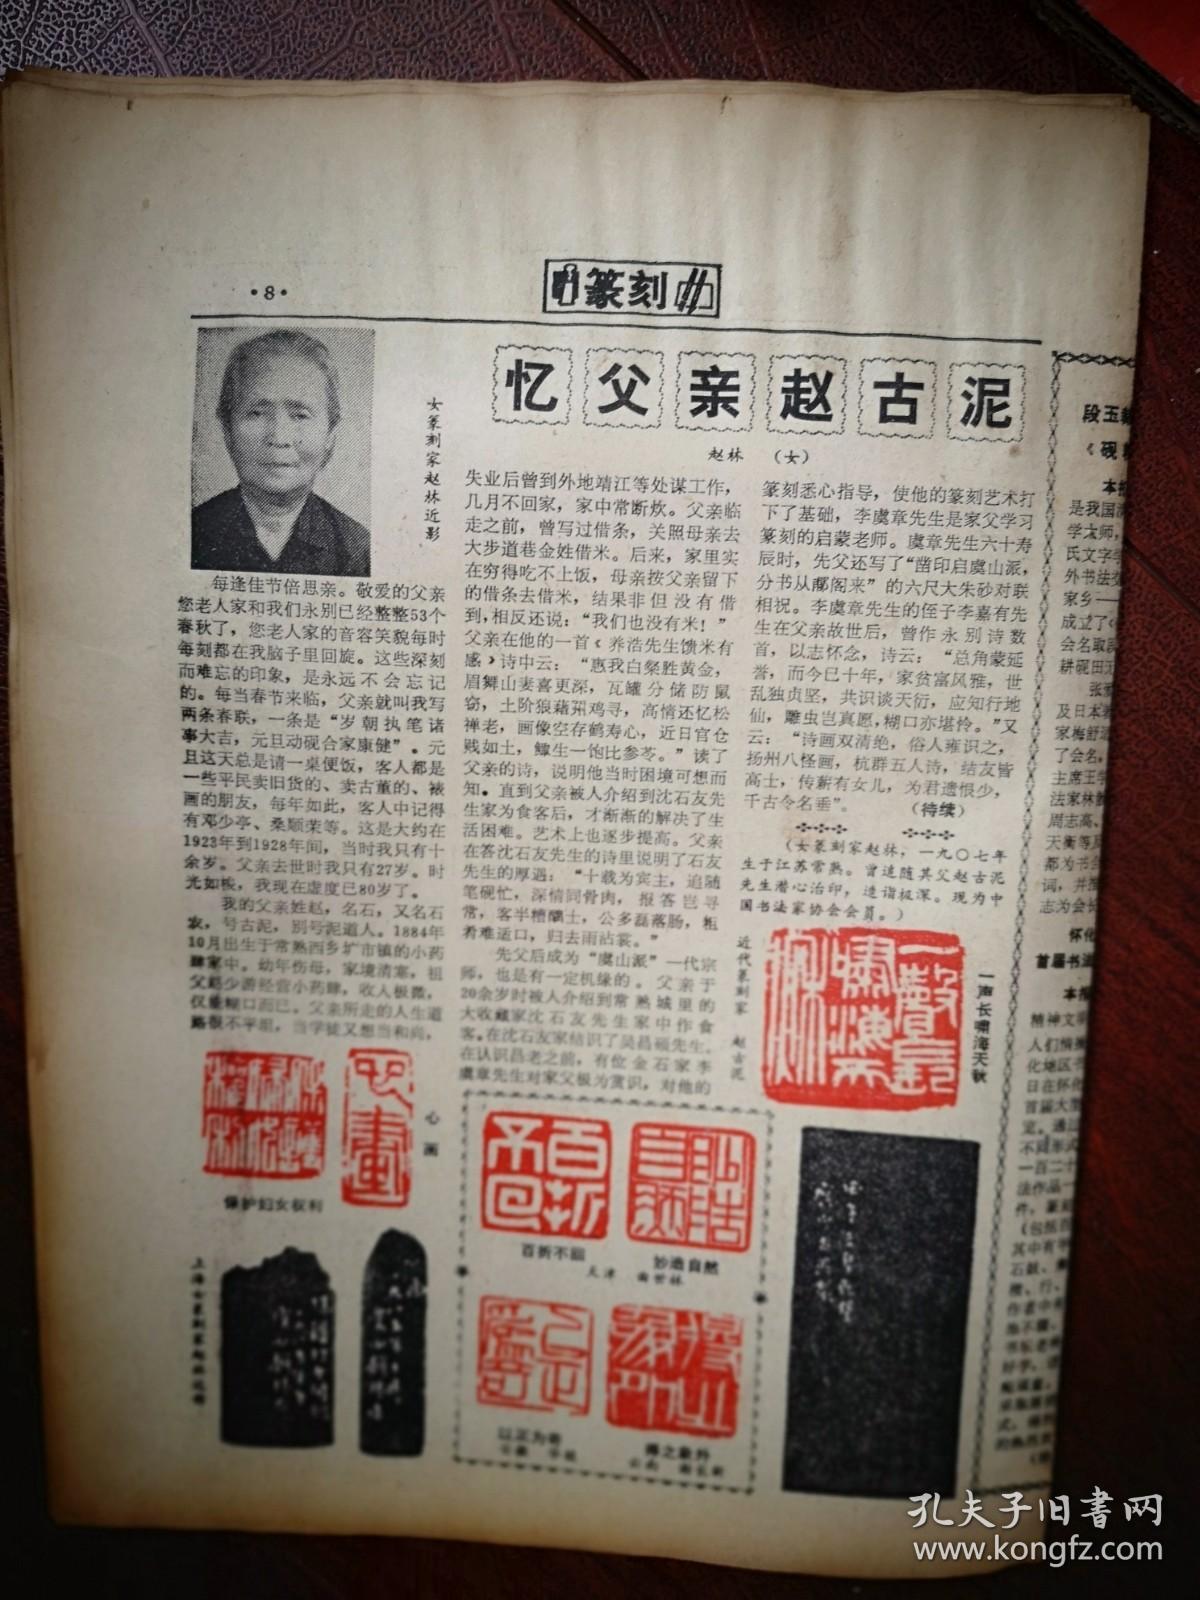 ·8·
篆刻
忆父亲赵古泥
赵林 （女）
女篆刻家赵林近影
每逢佳节倍思亲。敬爱的父亲
您老人家和我们永别已经整整53个
春秋了，您老人家的音容笑貌每时
每刻都在我脑子里回旋。这些深刻
而难忘的印象，是永远不会忘记
的。每当春节来临，父亲就叫我写
两条春联，一条是“岁朝执笔诸
事大吉，元旦动砚合家康健”。元
旦这天总是请一桌便饭，客人都是
一些平民卖旧货的、卖古董的、裱
画的朋友，每年如此，客人中记得
有邓少亭、桑顺荣等。这是大约在
1923年到1928年间，当时我只有十
余岁。父亲去世时我只有27岁。时
光如梭，我现在虚度已80岁了。
我的父亲姓赵，名石，又名石
农，号古泥，别号泥道人。1884年
10月出生于常熟西乡圹市镇的小药
肆家中。幼年伤母，家境清寒，祖
父赵少游经营小药肆，收入极微，
仅能糊口而已。父亲所走的人生道
路很不平坦，当学徒又想当和尚，
失业后曾到外地靖江等处谋工作，
几月不回家，家中常断炊。父亲临
走之前，曾写过借条，关照母亲去
大步道巷金姓借米。后来，家里实
在穷得吃不上饭，母亲按父亲留下
的借条去借米，结果非但没有借
到，相反还说：“我们也没有米！”
父亲在他的一首《养浩先生馈米有
感》诗中云：“惠我白粲胜黄金，
眉舞山妻喜更深，瓦罐分储防鼠
窃，土阶狼藉粥鸡寻，高情还忆松
禅老，画像空存鹤寿心，近日官仓
贱如土，鲰生一饱比参苓。”读了
父亲的诗，说明他当时困境可想而
知。直到父亲被人介绍到沈石友先
生家为食客后，才渐渐的解决了生
活困难。艺术上也逐步提高。父亲
在答沈石友先生的诗里说明了石友
先生的厚遇：“十载为宾主，追随
笔砚忙，深情同骨肉，报答岂寻
常，客半糟醨士，公多磊落肠，粗
肴难适口，归去雨沾裳。”
先父后成为“虞山派”一代宗
师，也是有一定机缘的。父亲于
20余岁时被人介绍到常熟城里的
大收藏家沈石友先生家中作食
客。在沈石友家结识了吴昌硕先生。
在认识昌老之前，有位金石家李
虞章先生对家父极为赏识，对他的
篆刻悉心指导，使他的篆刻艺术打
下了基础，李虞章先生是家父学习
篆刻的启蒙老师。虞章先生六十寿
辰时，先父还写了“凿印启虞山派，
分书从郙阁来”的六尺大朱砂对联
相祝。李虞章先生的侄子李嘉有先
生在父亲故世后，曾作永别诗数
首，以志怀念，诗云：“总角蒙延
誉，而今已十年，家贫富风雅，世
乱独贞坚，共识谈天衍，应知行地
仙，雕虫岂真愿，糊口亦堪怜。”又
云：“诗画双清绝，俗人雍识之，
扬州八怪画，杭群五人诗，结友皆
高士，传薪有女儿，为君遗恨少，
千古令名垂”。 （待续）
（女篆刻家赵林，一九〇七年
生于江苏常熟。曾追随其父赵古泥
先生潜心治印，造诣极深。现为中
国书法家协会会员。）
近代篆刻家 赵古泥
一声长啸海天秋
心画
保护妇女权利
百折不回
妙造自然
以正为奇
得之象外
段玉
《砚
本报
是我国
学大师，
氏文字学
外书法
家乡一
成立了
会名取
耕砚田
及日本
家梅舒
了会名，
主席王学
法家林
周志高、
天衡等
都为书
词，并
志为会长
怀化
首届书法
本报
精神文明
人们
化地区
日在怀化
首届大
不同形式
一百二十
法作品一
件，篆刻
其中有
孔夫子旧书网
www.kongfz.com